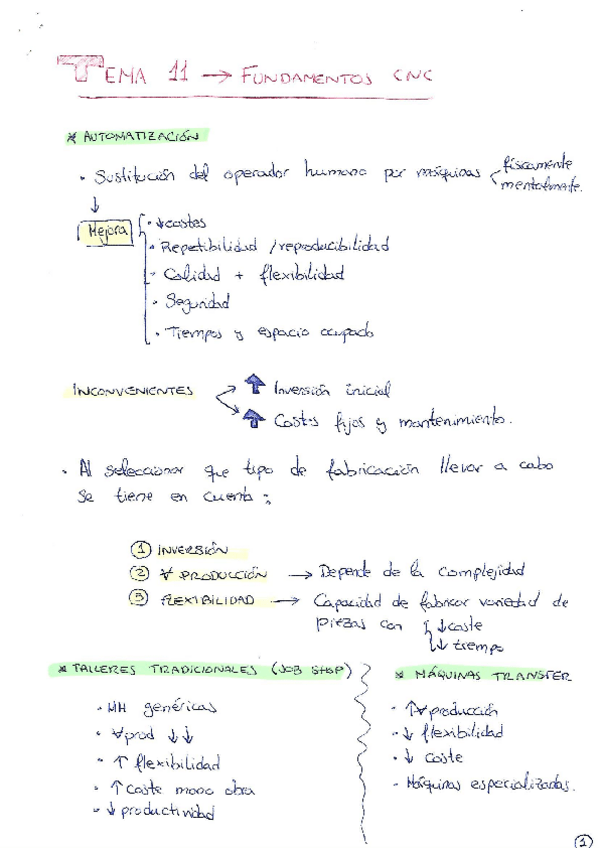 TEMA 11 → FUNDAMENTOS CNC
* AUTOMATIZACIÓN
· Sustitución del operador humano por máquinas < físcamente
mentalmente.
↓
Mejora
· ↓costes
· Repetibilidad / reproducibilidad
· Calidad + flexibilidad
· Seguridad
· Tiempos y espacio ocupado
INCONVENIENTES
↑ Inversión inicial
↑ Costos fijos y mantenimiento.
· Al seleccionar que tipo de fabricación llevar a cabo
se tiene en cuenta:
① INVERSIÓN
② ∀ PRODUCCIÓN → Depende de la complejidad
③ FLEXIBILIDAD → Capacidad de fabricar variedad de
piezas con { ↓coste
↓ tiempo
* TALLERES TRADICIONALES (JOB SHOP)
· MH genéricas
· ∀prod ↓↓
· ↑ flexibilidad
· ↑ coste mano obra
· ↓ productividad
* MÁQUINAS TRANSFER
· ↑∀producción
· ↓ flexibilidad
· ↓ coste
· Máquinas especializadas.
①